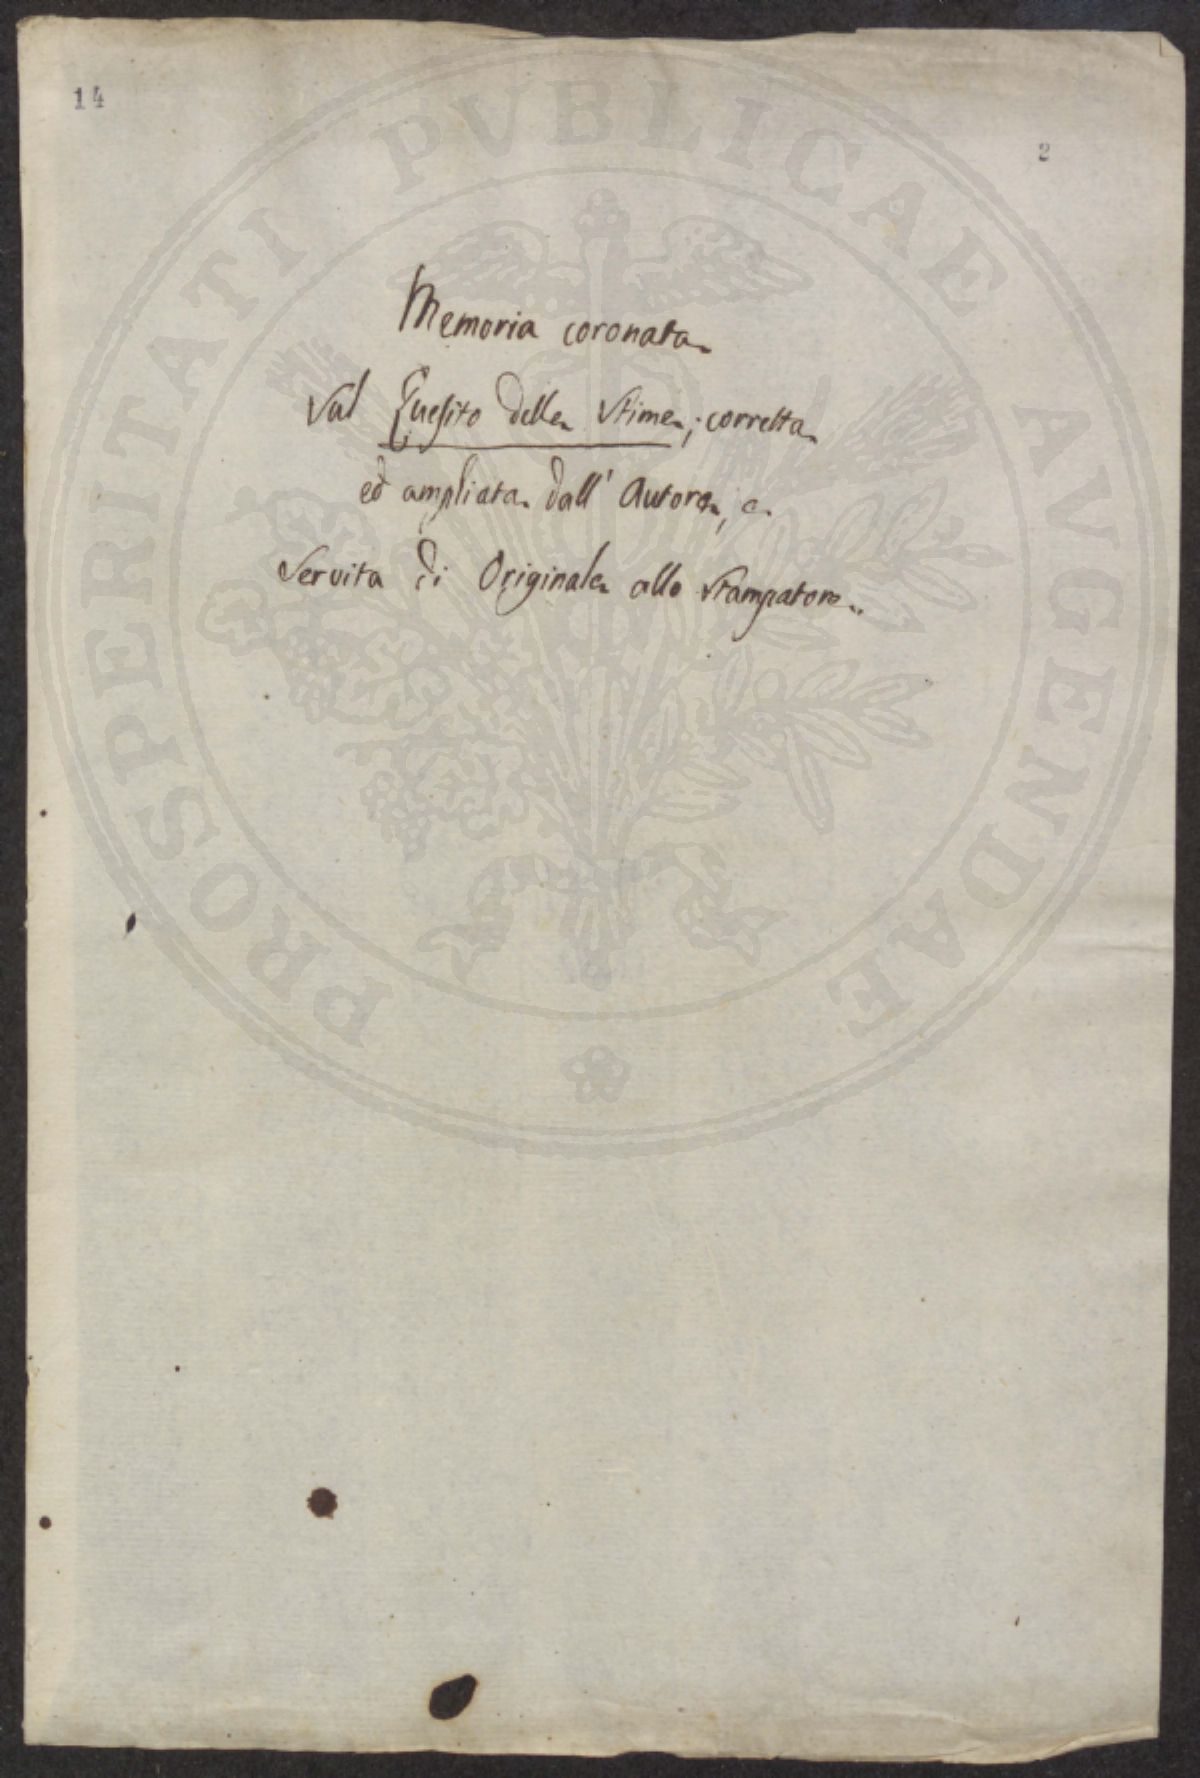 14
2
PROSPERITATI PVBLICAE AVGENDAE
Memoria coronata
Sul Quesito delle Stime; corretta
ed ampliata dall' Autore, e
Servita di Originale allo Stampatore.